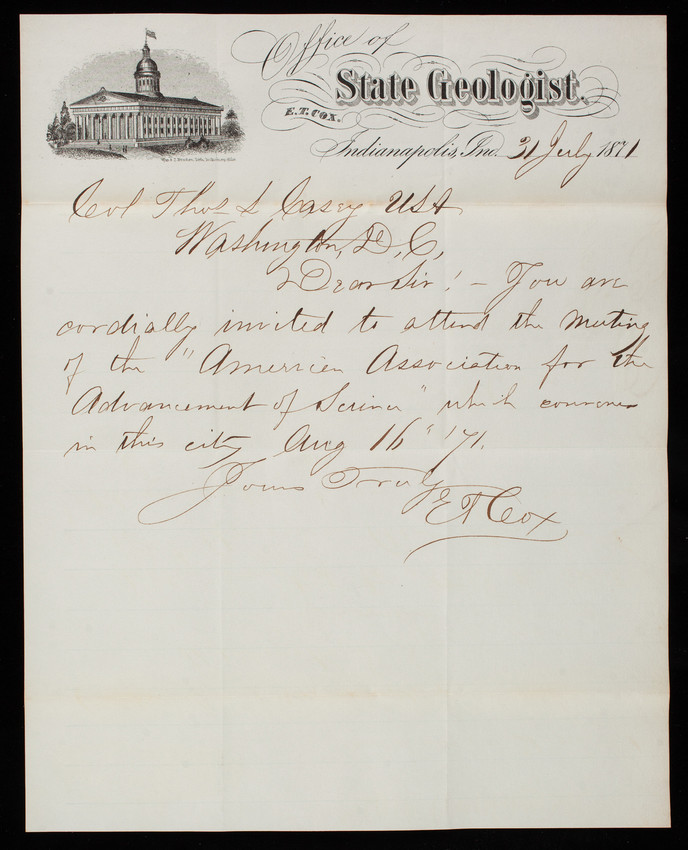 Office of
State Geologist.
E. T. COX.
Indianapolis, Ind. 31 July 1871
Col Thos L Casey USA
Washington, D, C,
Dear Sir! – You are
cordially invited to attend the Meeting
of the "American Association for the
Advancement of Science" which convenes
in this city Aug 16" '71.
Yours Truly
E T Cox